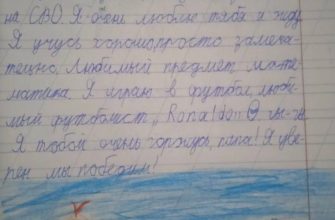 на СВО. Я очень люблю тебя и жду
Я учусь хорошо, просто замеча-
тельно. Любимый предмет мате
матика. Я играю в футбол люби-
мый футболист, Ronaldon
Я тобой очень горжусь, папа! Я уве-
рен мы победим!